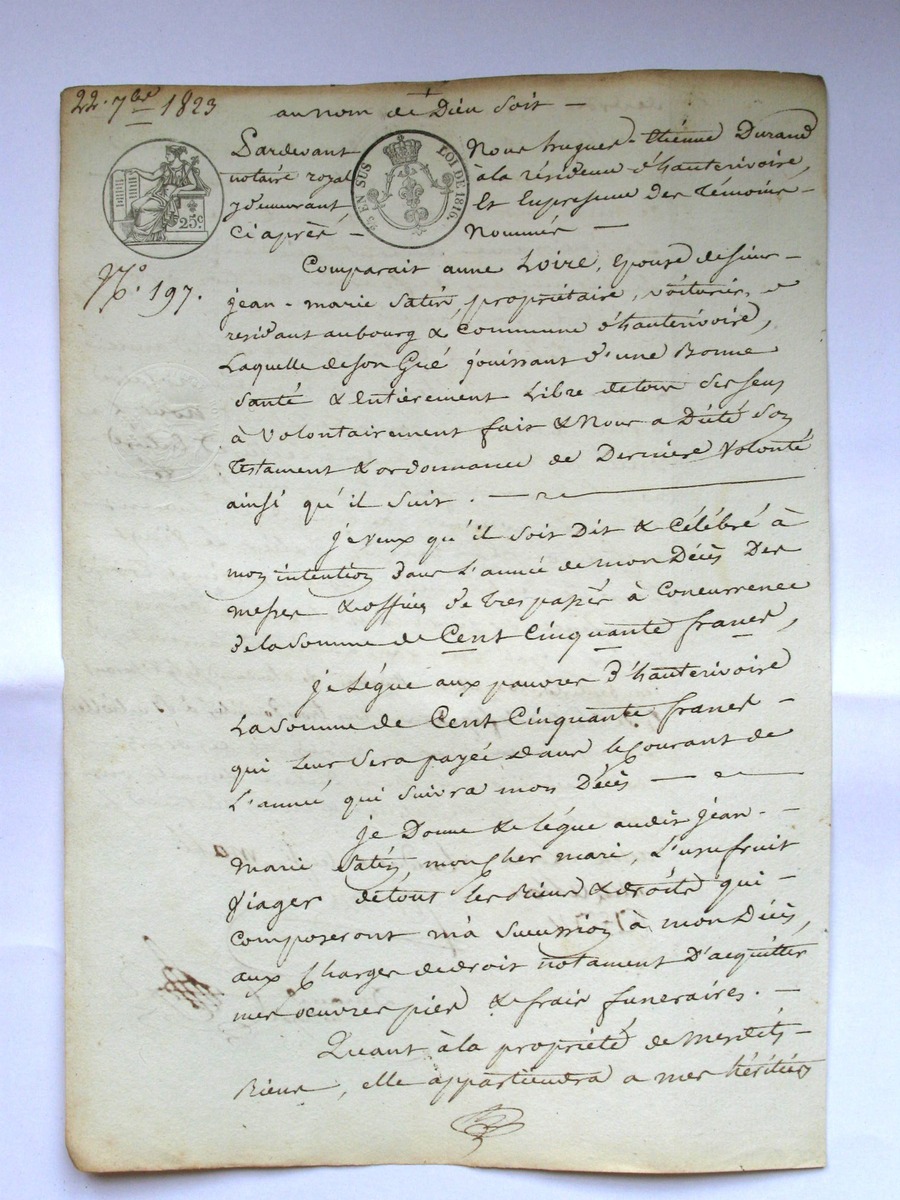 22. 7bre 1823
au nom de Dieu soit —
Pardevant Nous hugues-étienne Durand
notaire royal à la résidence d'hauterivoire,
y demeurant Et En presence Des Témoins -
Ci après — Nommés —
25 EN SUS LOI DE 1816.
25c
No. 197.
Comparait anne Loire, épouse de sieur -
jean-marie Satin, propriétaire, voiturier,
residant au bourg & Commune d'hauterivoire,
Laquelle de son Gré jouissant d'une Bonne
Santé & Entièrement Libre de tous ses sens
à Volontairement fait & Nous a Dicté Son
Testament & ordonnance de Derniere Volonté
ainsi qu'il suit. —
je veux qu'il soit Dit & Célébré à
mon intention dans L'année de mon Décès Des
messes & offices de Trespassés à Concurrence
de la somme de Cent Cinquante francs,
je Légue aux pauvres d'hauterivoire
La Somme de Cent Cinquante francs -
qui Leur Sera payée Dans le Courant de
L'année qui suivra mon Décès —
je Donne & légue audit jean -
Marie Satin, mon Cher mari, L'usufruit
viager de tous les Biens & droits qui -
Composeront ma Succession à mon Décès,
aux Charges de droit notament D'acquitter
mes oeuvres pies & frais funeraires. —
Quant à la propriété de mesdits -
Biens, elle appartiendra a mes héritiers